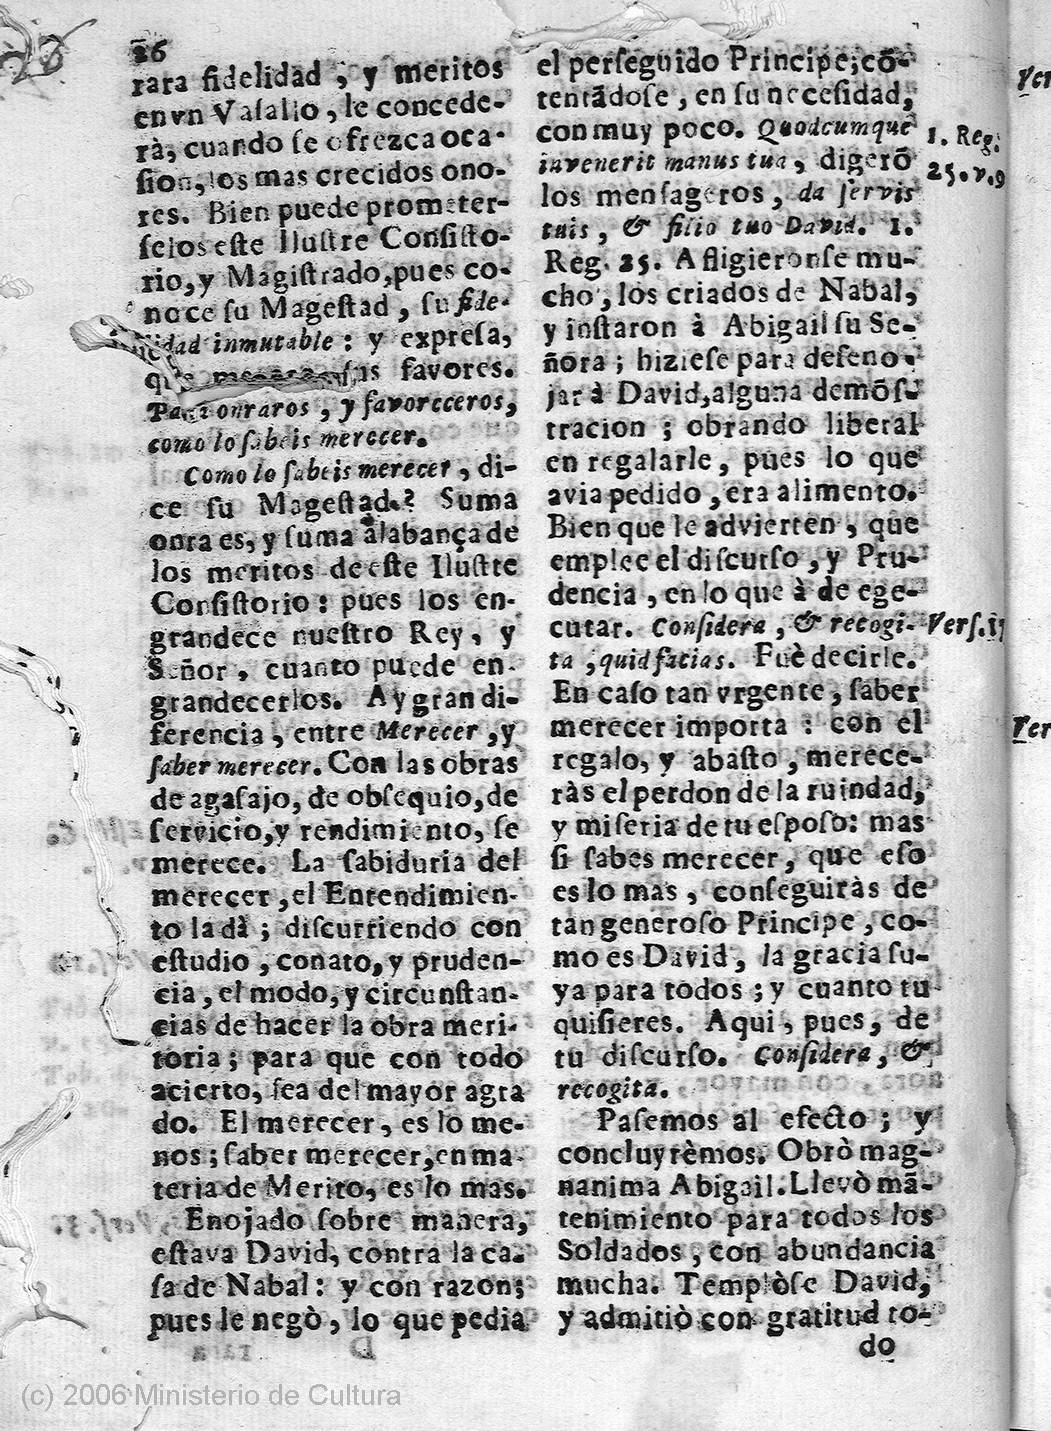 26
rara fidelidad, y meritos
en vn Vasallo, le concede-
rà, cuando se ofrezca oca-
sion, los mas crecidos ono-
res. Bien puede prometer-
selos este Ilustre Consisto-
rio, y Magistrado, pues co-
noce su Magestad, su fide-
lidad inmutable: y expresa,
que sus favores.
Para onraros, y favoreceros,
como lo sabeis merecer.
Como lo sabeis merecer, di-
ce su Magestad? Suma
onra es, y suma alabança de
los meritos de este Ilustre
Consistorio: pues los en-
grandece nuestro Rey, y
Señor, cuanto puede en-
grandecerlos. Ay gran di-
ferencia, entre Merecer, y
saber merecer. Con las obras
de agasajo, de obsequio, de
servicio, y rendimiento, se
merece. La sabiduria del
merecer, el Entendimien-
to la dà; discurriendo con
estudio, conato, y pruden-
cia, el modo, y circunstan-
cias de hacer la obra meri-
toria; para que con todo
acierto, sea del mayor agra
do. El merecer, es lo me-
nos; saber merecer, en ma-
teria de Merito, es lo mas.
Enojado sobre manera,
estava David, contra la ca-
sa de Nabal: y con razon;
pues le negò, lo que pedia
el perseguido Principe; cõ-
tentãdose, en su necesidad,
con muy poco. Quodcumque
invenerit manus tua, digerõ
los mensageros, da servis
tuis, & filio tuo David. 1.
Reg. 25. Afligieronse mu-
cho, los criados de Nabal,
y instaron à Abigail su Se-
ñora; hiziese para deseno-
jar à David, alguna demõs-
tracion; obrando liberal
en regalarle, pues lo que
avia pedido, era alimento.
Bien que le advierten, que
emplee el discurso, y Pru-
dencia, en lo que à de ege-
cutar. Considera, & recogi-
ta, quid facias. Fuè decirle.
En caso tan vrgente, saber
merecer importa: con el
regalo, y abasto, merece-
ràs el perdon de la ruindad,
y miseria de tu esposo: mas
si sabes merecer, que eso
es lo mas, conseguiràs de
tan generoso Principe, co-
mo es David, la gracia su-
ya para todos; y cuanto tu
quisieres. Aqui, pues, de
tu discurso. Considera, &
recogita.
Pasemos al efecto; y
concluyrèmos. Obrò mag-
nanima Abigail. Llevò mã-
tenimiento para todos los
Soldados, con abundancia
mucha. Templòse David,
y admitiò con gratitud to-
do
1. Reg.
25. v. 9
Vers. 17
Ver
Ver
(c) 2006 Ministerio de Cultura